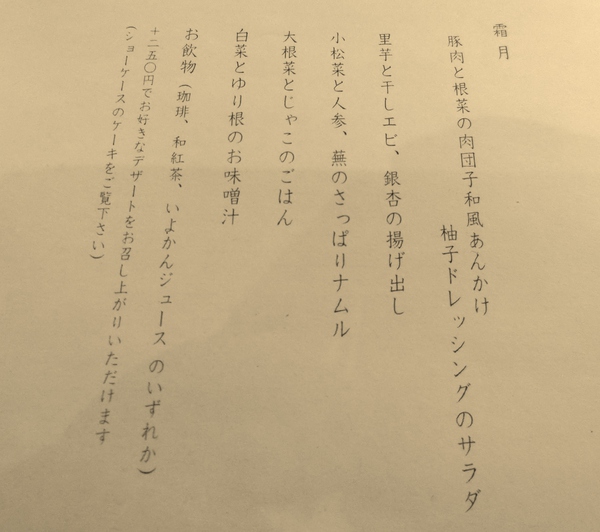 霜月
豚肉と根菜の肉団子和風あんかけ
柚子ドレッシングのサラダ
里芋と干しエビ、銀杏の揚げ出し
小松菜と人参、蕪のさっぱりナムル
大根菜とじゃこのごはん
白菜とゆり根のお味噌汁
お飲物（珈琲、和紅茶、いよかんジュース のいずれか）
＋二五〇円でお好きなデザートをお召し上がりいただけます
（ショーケースのケーキをご覧下さい）